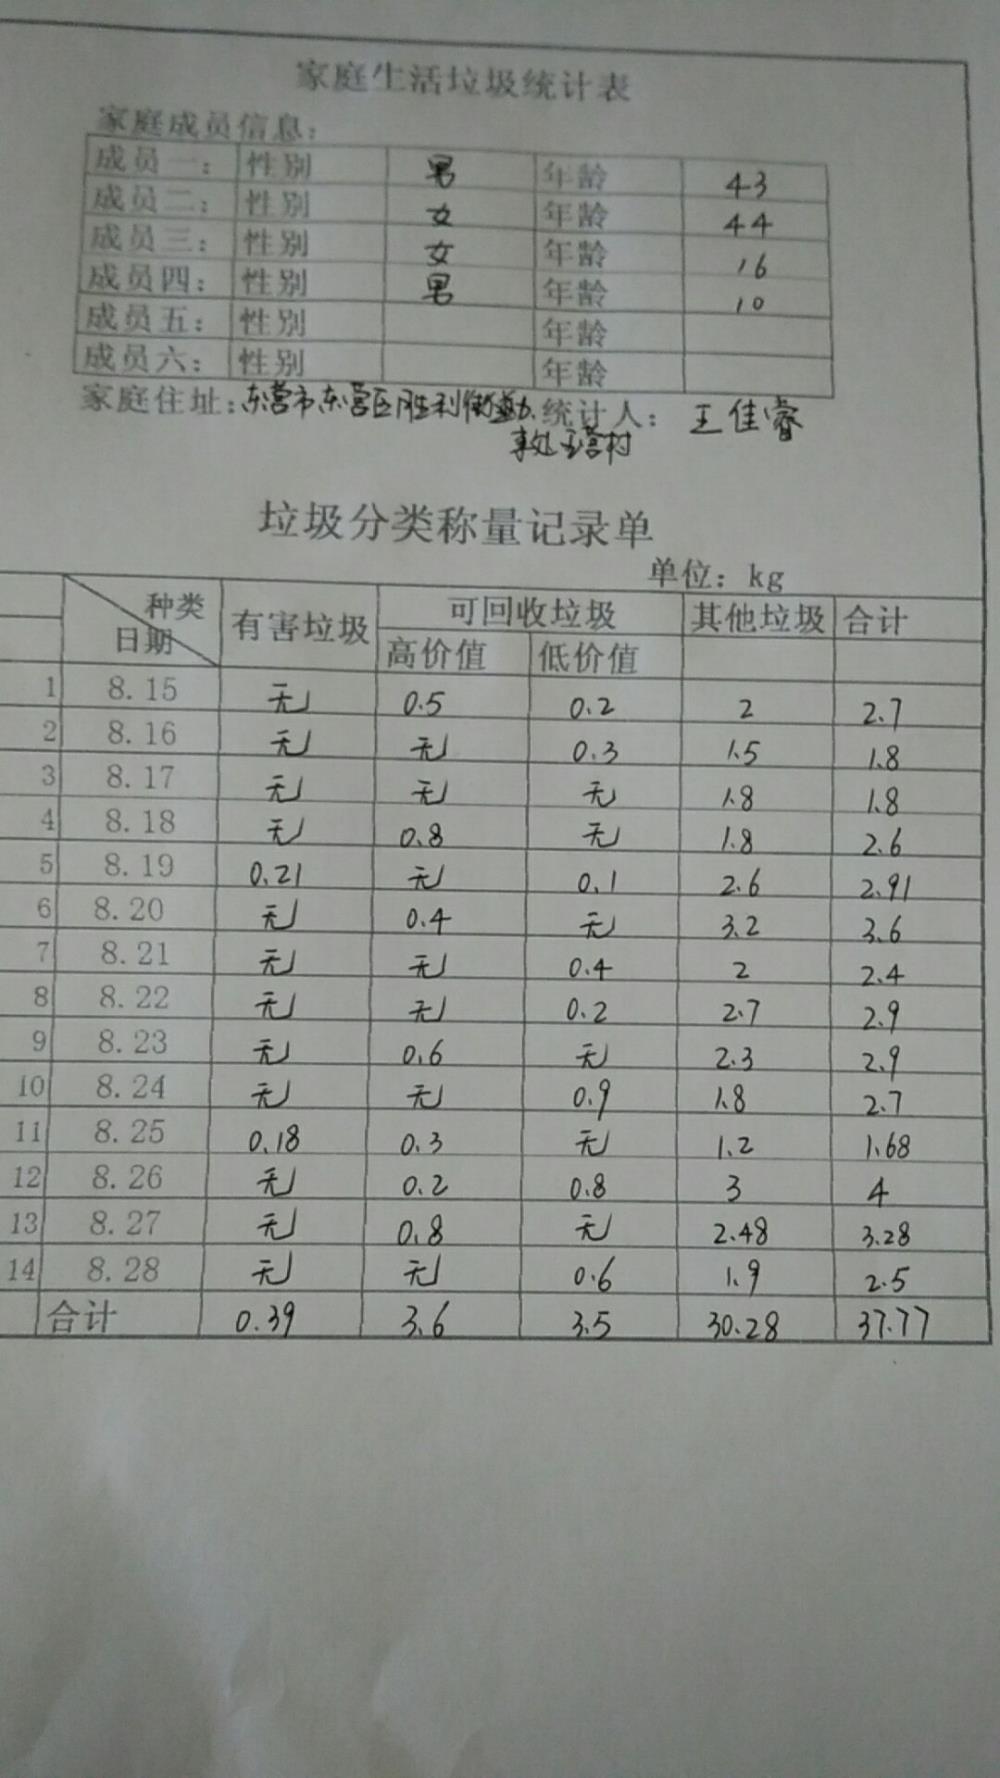 家庭生活垃圾统计表
家庭成员信息：
成员一： 性别 男 年龄 43
成员二： 性别 女 年龄 44
成员三： 性别 女 年龄 16
成员四： 性别 男 年龄 10
成员五： 性别 年龄
成员六： 性别 年龄
家庭住址：东营市东营区胜利街道办 统计人： 王佳睿
事处王营村
垃圾分类称量记录单
单位：kg
种类 有害垃圾 可回收垃圾 其他垃圾 合计
日期 高价值 低价值
1 8.15 无 0.5 0.2 2 2.7
2 8.16 无 无 0.3 1.5 1.8
3 8.17 无 无 无 1.8 1.8
4 8.18 无 0.8 无 1.8 2.6
5 8.19 0.21 无 0.1 2.6 2.91
6 8.20 无 0.4 无 3.2 3.6
7 8.21 无 无 0.4 2 2.4
8 8.22 无 无 0.2 2.7 2.9
9 8.23 无 0.6 无 2.3 2.9
10 8.24 无 无 0.9 1.8 2.7
11 8.25 0.18 0.3 无 1.2 1.68
12 8.26 无 0.2 0.8 3 4
13 8.27 无 0.8 无 2.48 3.28
14 8.28 无 无 0.6 1.9 2.5
合计 0.39 3.6 3.5 30.28 37.77